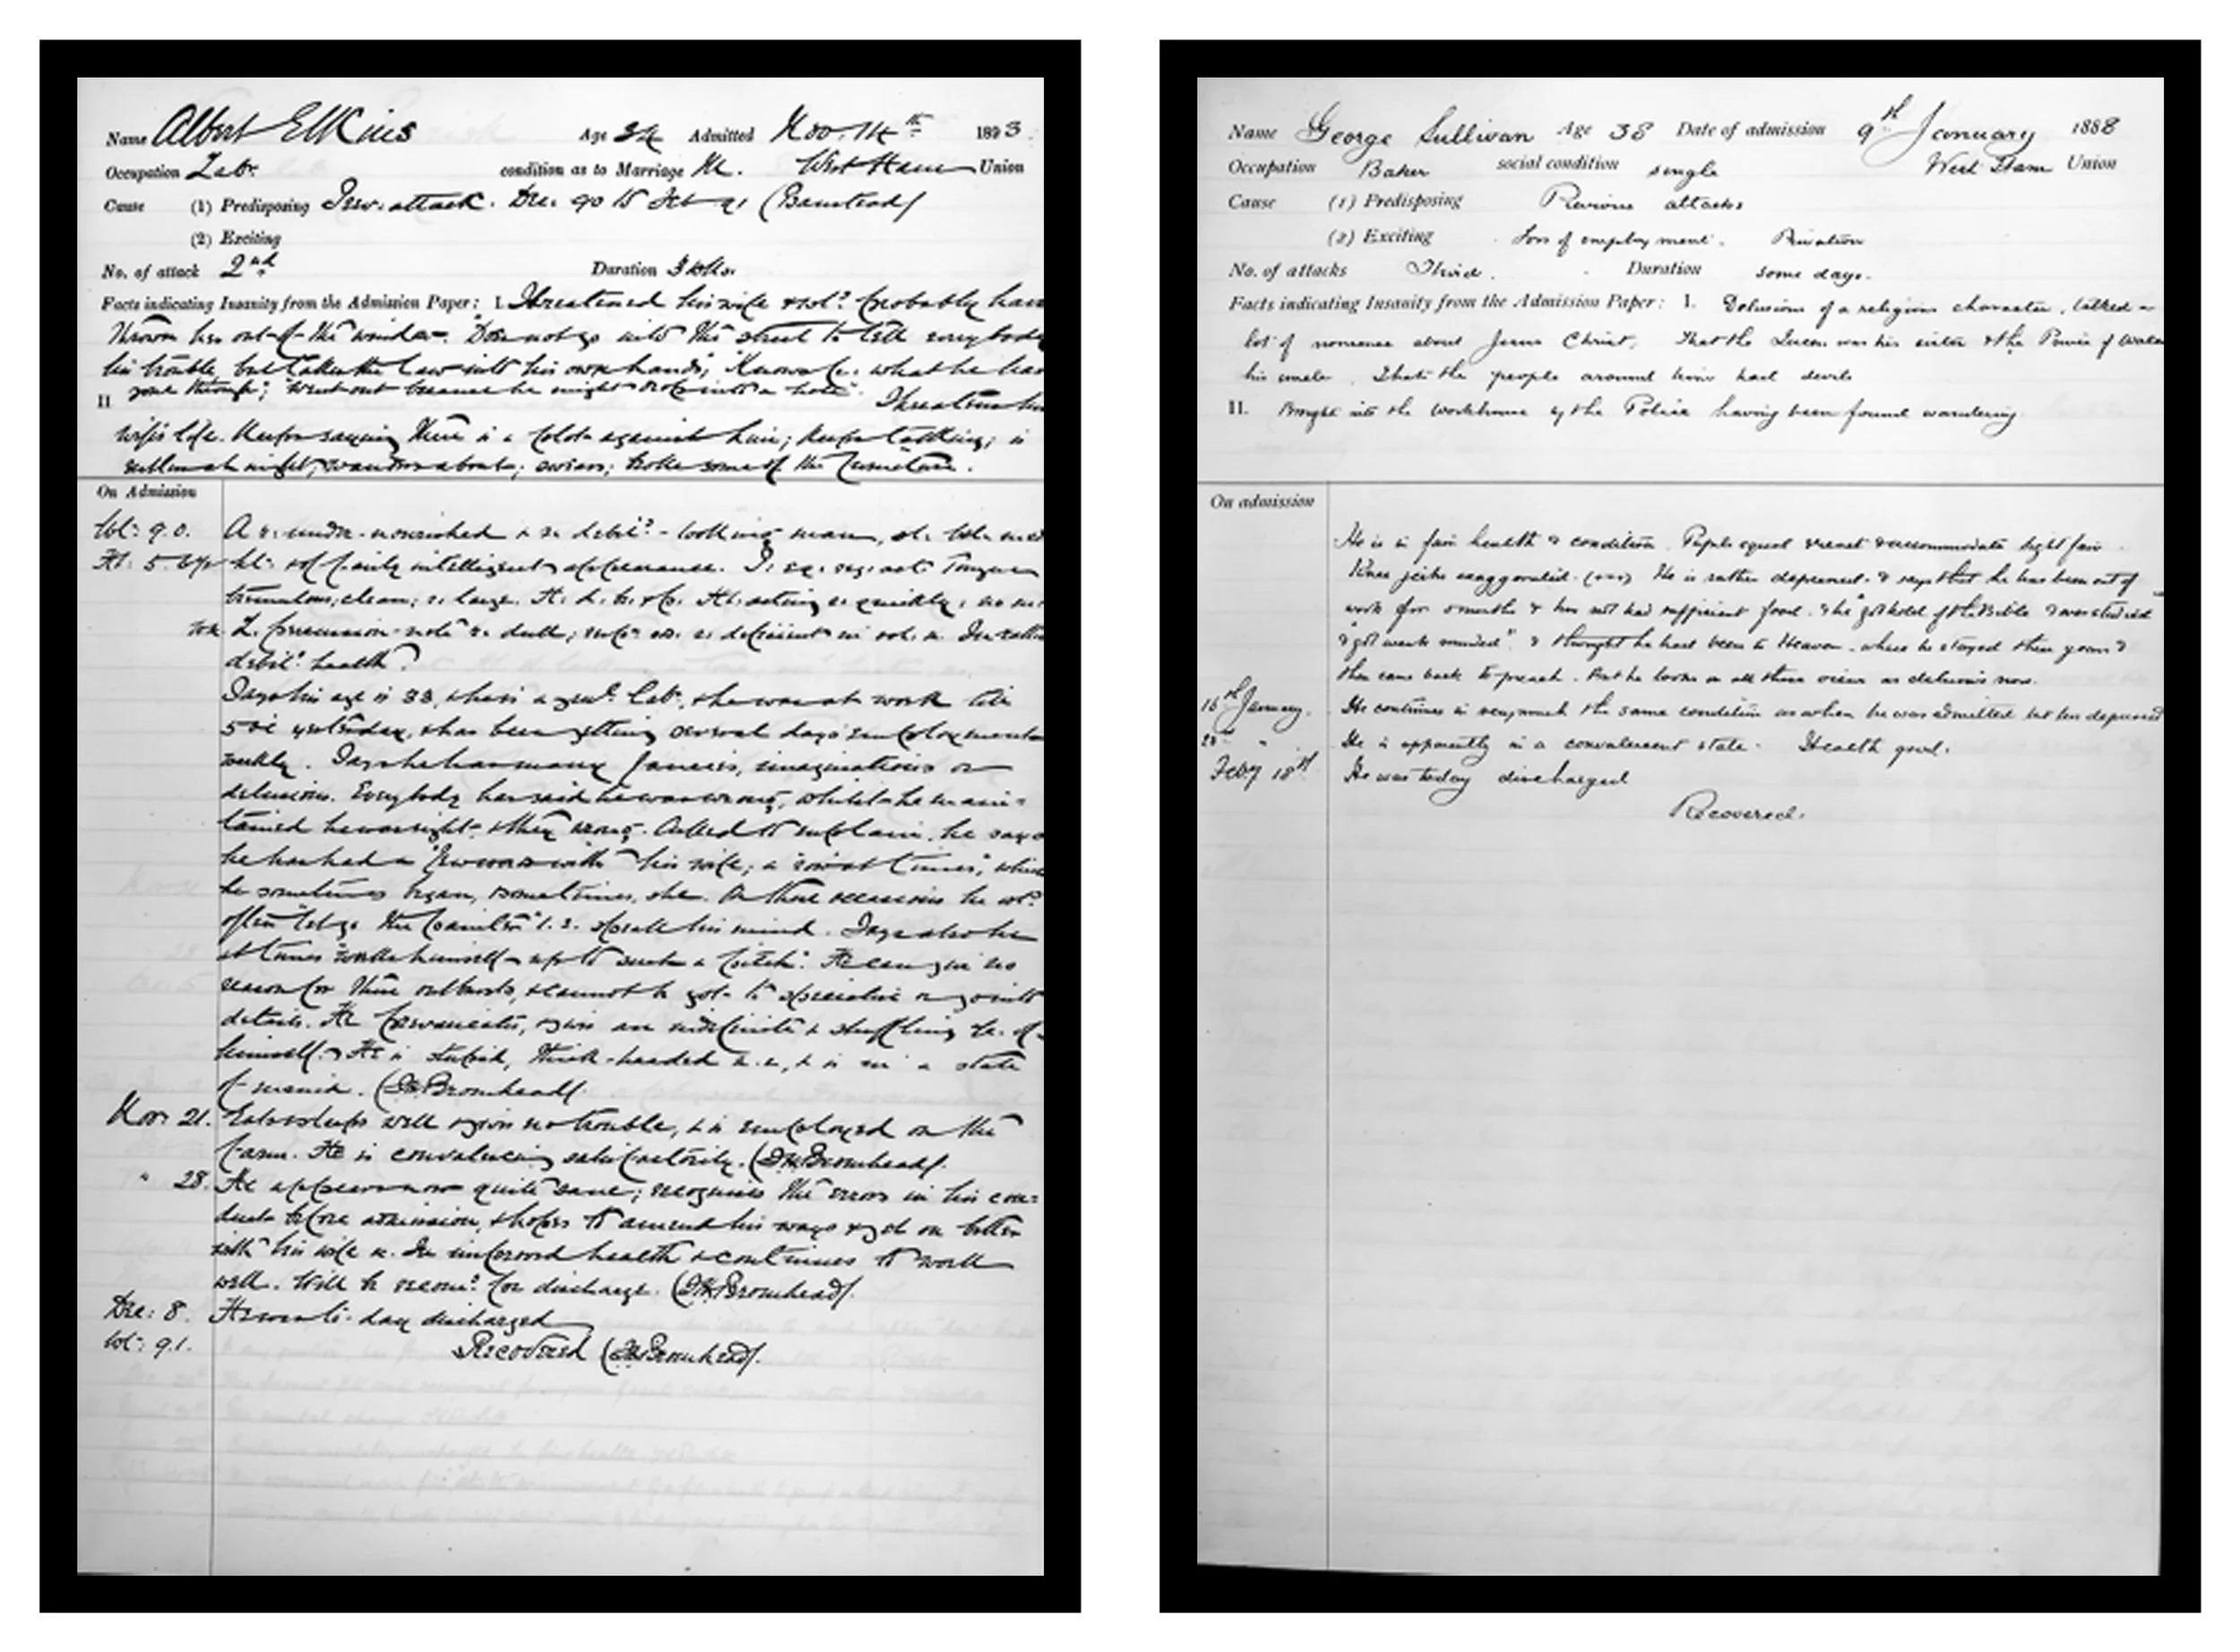 Name Albert Elkins Age 34 Admitted Nov. 14th 1893
Occupation Lab: condition as to Marriage M. West Ham Union
Cause (1) Predisposing Prev: attack. Dec. 90 to Feb 91 (Banstead)
(2) Exciting
No. of attack 2nd Duration 3 wks.
Facts indicating Insanity from the Admission Paper: I. Threatened his wife & wld probably have
thrown her out of the window. "Does not go into the street to tell everybody
his trouble, but takes the law into his own hands; "Knows what he has
gone through; "went out because he might into a hole". Threatens his
II
wife's life. Keeps saying there is a plot against him; keeps talking; is
restless at night; wanders about; swears; broke some of the furniture.
On Admission
Wt: 9.0. A under-nourished & looking man,
Ht: 5. of fairly intelligent appearance. Tongue
tremulous; clean; large. acting quickly;
percussion-note dull;
health.
Says his age is 33, & he is a genl. Lab:, & he was at work till
5 yesterday, & has been getting several days' employment
weekly. Says he has many fancies, imaginations or
delusions. Everybody has said he was wrong, whilst he main-
tained he was right & they wrong. Asked to explain, he says
he has had a few words with his wife; a "row at times", which
he sometimes began, & sometimes, she. On those occasions he wd.
often "let go the painter" i.e. speak his mind. Says also he
at times "works himself up to such a pitch". He can give no
reason for these outbursts, & cannot be got to specialise or go into
details. He prevaricates, & gives an indefinite & shuffling of
himself. He is stupid, thick-headed & is in a state
of mania. (Bromhead).
Nov: 21. Eats & sleeps well & gives no trouble, & is employed on the
farm. He is convalescing satisfactorily. (Bromhead).
" 28. He appears now quite sane; recognises the errors in his con-
duct before admission, & hopes to amend his ways & get on better
with his wife &c. In improved health & continues to work
well. Will be recomd. for discharge. (Bromhead).
Dec: 8. He was to-day discharged
Wt: 9.1. Recovered (Bromhead).
Name George Sullivan Age 38 Date of admission 9th January 1888
Occupation Baker social condition single West Ham Union
Cause (1) Predisposing Previous attacks
(2) Exciting Loss of employment. Privation
No. of attacks Third. Duration some days.
Facts indicating Insanity from the Admission Paper: I. Delusions of a religious character, talked a
lot of nonsense about Jesus Christ. That the Queen was his sister & the Prince of Wales
his uncle. That the people around him had devils
II. Brought into the workhouse by the Police having been found wandering
On admission
He is in fair health & condition. Pupils equal & react & accommodate light fair.
Knee jerks exaggerated. He is rather depressed. & says that he has been out of
work for months & has not had sufficient food. & he got hold of the Bible & over studied
& "got weak minded" & thought he had been to Heaven. where he stayed three years &
then came back to preach. But he looks on all these views as delusions now.
16th January. He continues in very much the same condition as when he was admitted but less depressed
28th " He is apparently in a convalescent state. Health good.
Feby 18th He was today discharged
Recovered.